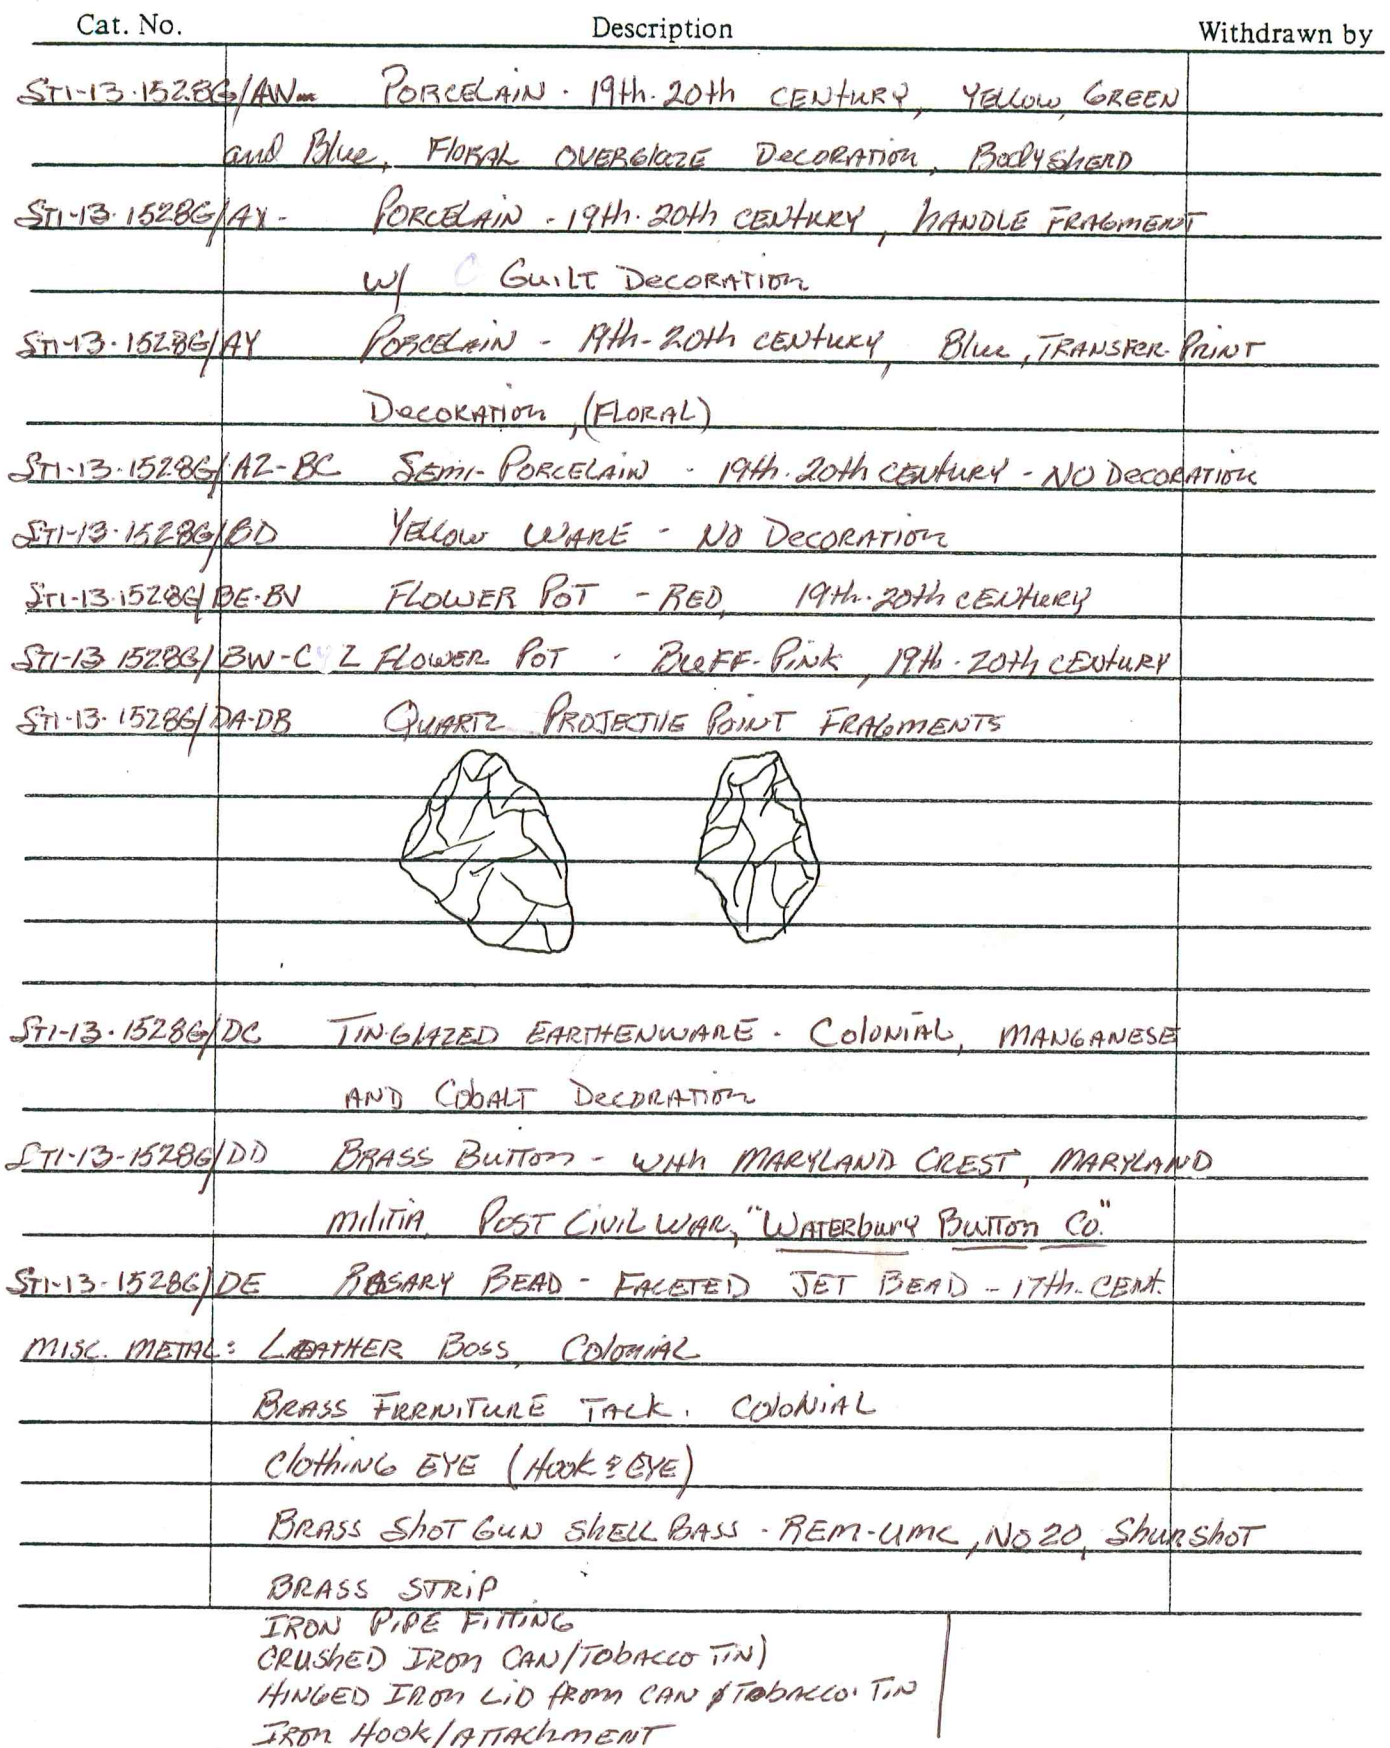 Cat. No. Description Withdrawn by
ST1-13-1528G/AW- PORCELAIN - 19th-20th CENTURY, YELLOW, GREEN
and Blue, FLORAL OVERGLAZE DECORATION, BODYSHERD
ST1-13-1528G/AX- PORCELAIN - 19th-20th CENTURY, HANDLE FRAGMENT
w/ GUILT DECORATION
ST1-13-1528G/AY PORCELAIN - 19th-20th CENTURY, Blue, TRANSFER-PRINT
DECORATION, (FLORAL)
ST1-13-1528G/AZ-BC SEMI-PORCELAIN - 19th-20th CENTURY - NO DECORATION
ST1-13-1528G/BD YELLOW WARE - NO DECORATION
ST1-13-1528G/BE-BV FLOWER POT - RED, 19th-20th CENTURY
ST1-13 1528G/BW-CZ FLOWER POT - BUFF-PINK, 19th-20th CENTURY
ST1-13-1528G/DA-DB QUARTZ PROJECTILE POINT FRAGMENTS
ST1-13-1528G/DC TIN-GLAZED EARTHENWARE - COLONIAL, MANGANESE
AND COBALT DECORATION
ST1-13-1528G/DD BRASS BUTTON - WITH MARYLAND CREST, MARYLAND
MILITIA, POST CIVIL WAR, "WATERBURY BUTTON CO."
ST1-13-1528G/DE ROSARY BEAD - FACETED JET BEAD - 17th-CENT.
MISC. METAL: LEATHER BOSS, COLONIAL
BRASS FURNITURE TACK. COLONIAL
CLOTHING EYE (HOOK & EYE)
BRASS SHOT GUN SHELL BASS - REM-UMC, NO 20, SHURSHOT
BRASS STRIP
IRON PIPE FITTING
CRUSHED IRON CAN/TOBACCO TIN)
HINGED IRON LID FROM CAN / TOBACCO TIN
IRON HOOK/ATTACHMENT